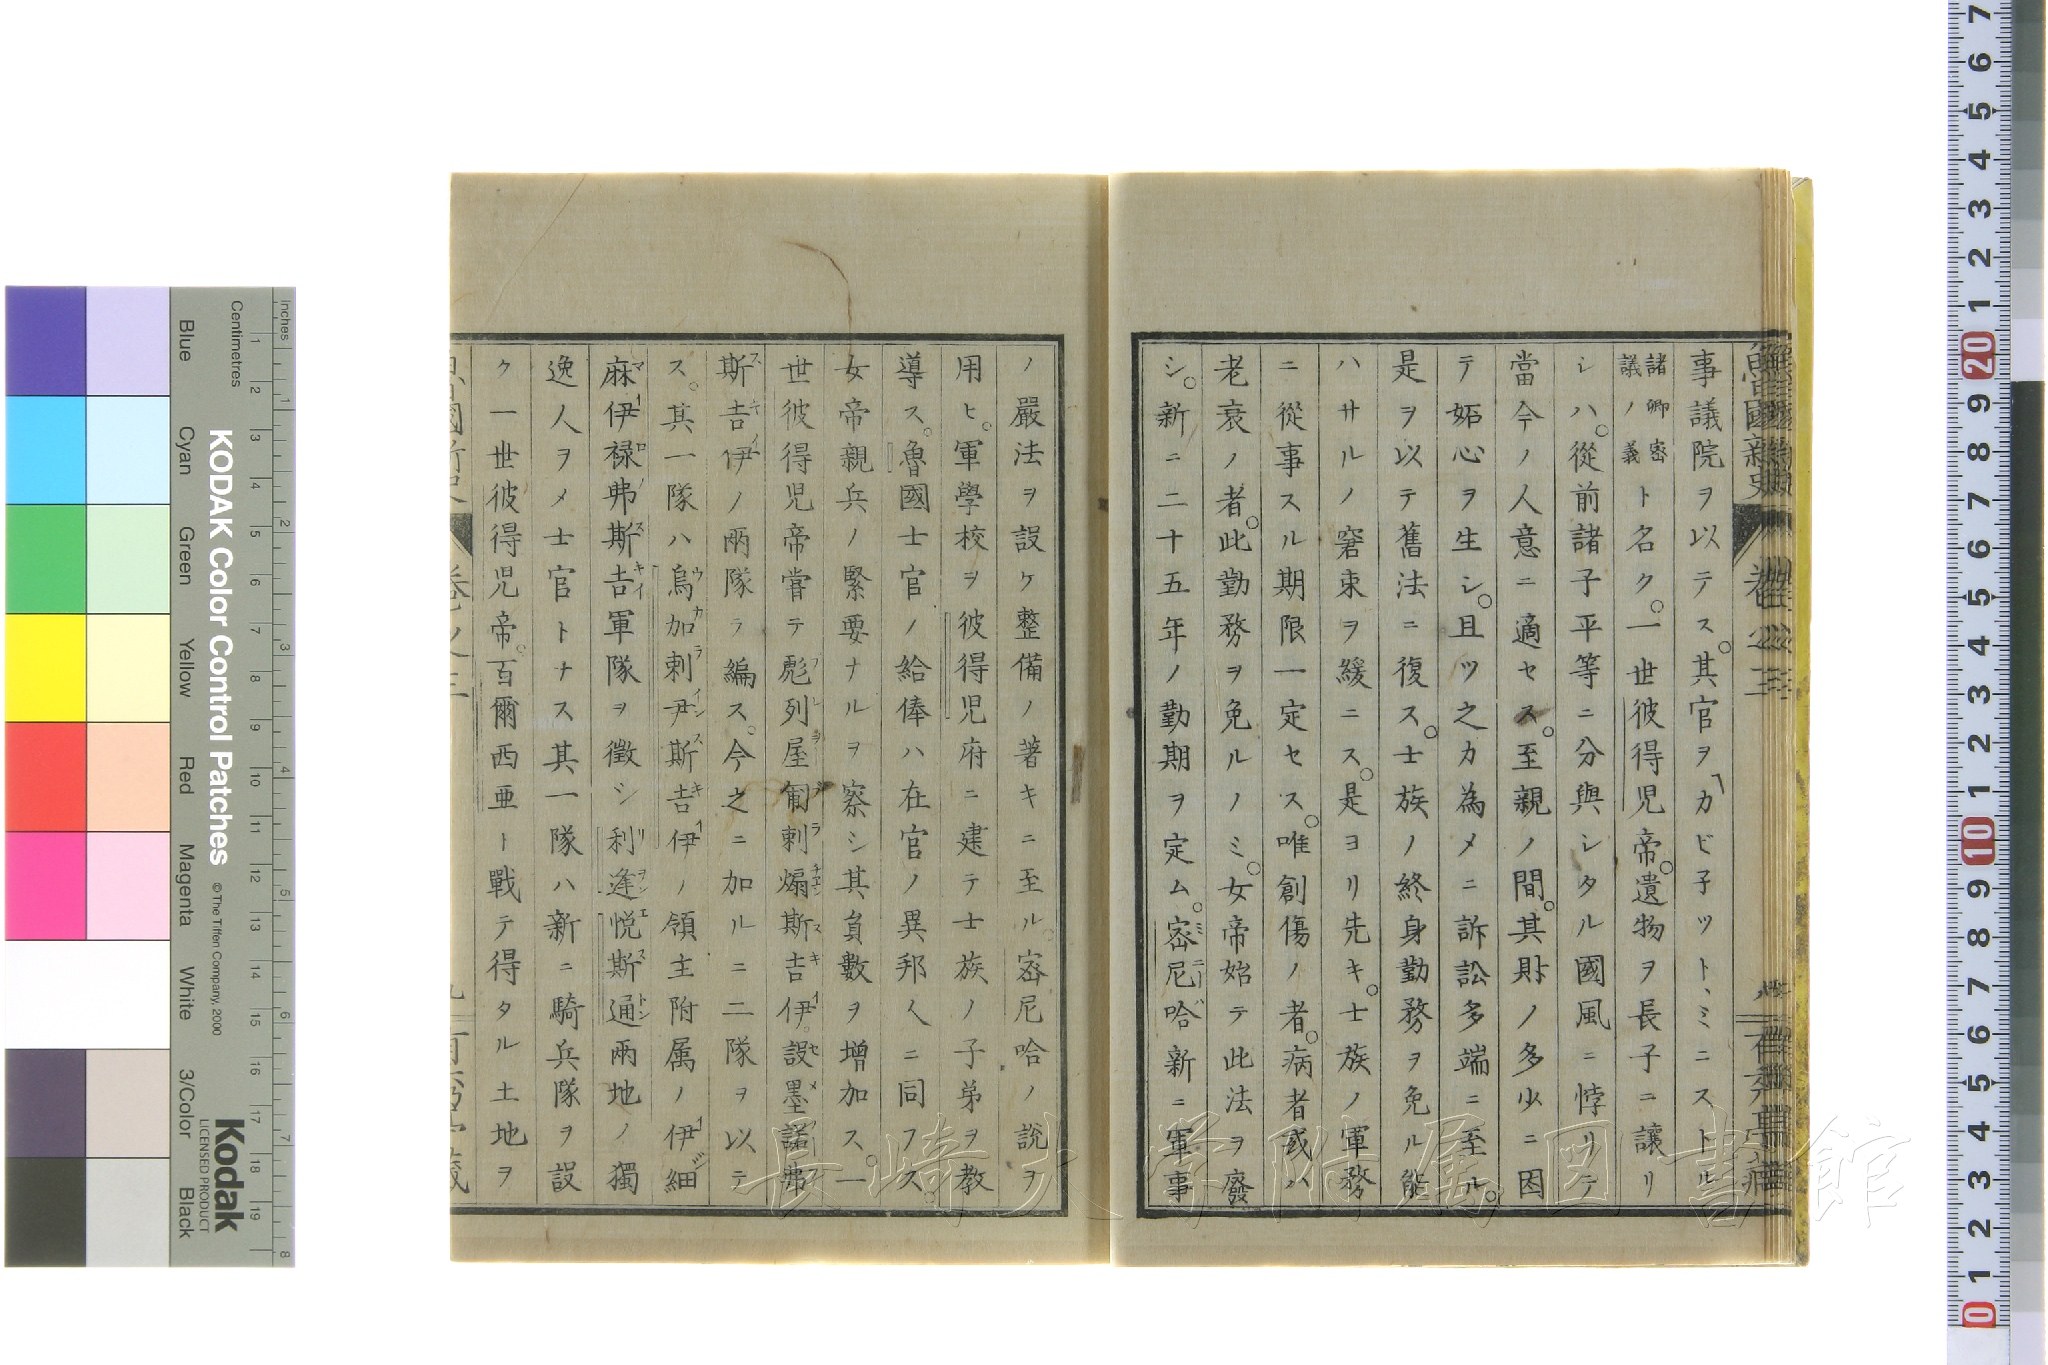 魯西亜國新史
卷之三
事議院ヲ以テス。其官ヲ「カビ子ツト、ミニストル
諸卿密
議ノ義
ト名ク。一世彼得児帝。遺物ヲ長子ニ讓リ
シハ。從前諸子平等ニ分與シタル國風ニ悖リテ
當今ノ人意ニ適セス。至親ノ間。其財ノ多少ニ因
テ妬心ヲ生シ。且ツ之カ為メニ訴訟多端ニ至ル。
是ヲ以テ舊法ニ復ス。士族ノ終身勤務ヲ免ル能
ハサルノ窘束ヲ緩ニス。是ヨリ先キ。士族ノ軍務
ニ從事スル期限一定セス。唯創傷ノ者。病者或ハ
老衰ノ者。此勤務ヲ免ルノミ。女帝始テ此法ヲ廢
シ。新ニ二十五年ノ勤期ヲ定ム。密尼哈新ニ軍事
ノ嚴法ヲ設ケ整備ノ著キニ至ル。密尼哈ノ說ヲ
用ヒ。軍學校ヲ彼得児府ニ建テ士族ノ子弟ヲ教
導ス。魯國士官ノ給俸ハ在官ノ異邦人ニ同フス。
女帝親兵ノ緊要ナルヲ察シ其負數ヲ增加ス。一
世彼得児帝嘗テ彪列屋匍剌煽斯吉伊。設墨諾弗
斯吉伊ノ兩隊ヲ編ス。今之ニ加ルニ二隊ヲ以テ
ス。其一隊ハ烏加剌伊斯吉伊ノ領主附属ノ伊細
麻伊禄弗斯吉軍隊ヲ徵シ利逢悦斯通兩地ノ獨
逸人ヲメ士官トナス其一隊ハ新ニ騎兵隊ヲ設
ク一世彼得児帝。百爾西亜ト戰テ得タル土地ヲ